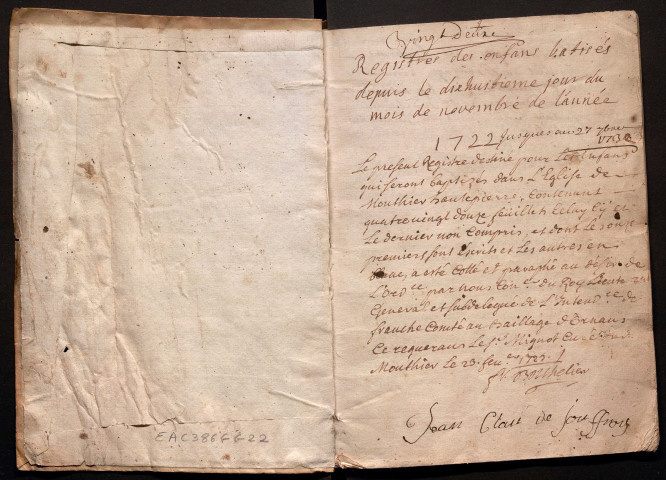 EAC386GG22
Registres des enfans batisés
depuis le dixhuitieme jour du
mois de novembre de l'année
1722 jusques au 27
Le present Registre destiné pour Les Enfans
qui seront baptizés dans L'Eglise de
Mouthier hautepierre, Contenant
quatre vingt douze feuillets Celuy cy et
Le dernier non Compris, et dont Les onze
premiers sont Ecrits et Les autres en
blanc, a esté Cotté et paraphé au desir de
L'ord.ce par nous Con.er du Roy Lieute
General et subdelegué de L'Inten.ce de
franche Comté au bailliage d'Ornans
Ce requerant Le S.r Mignot Curé dud.
Mouthier Le 23 feu.er 1723
Jean Claude de